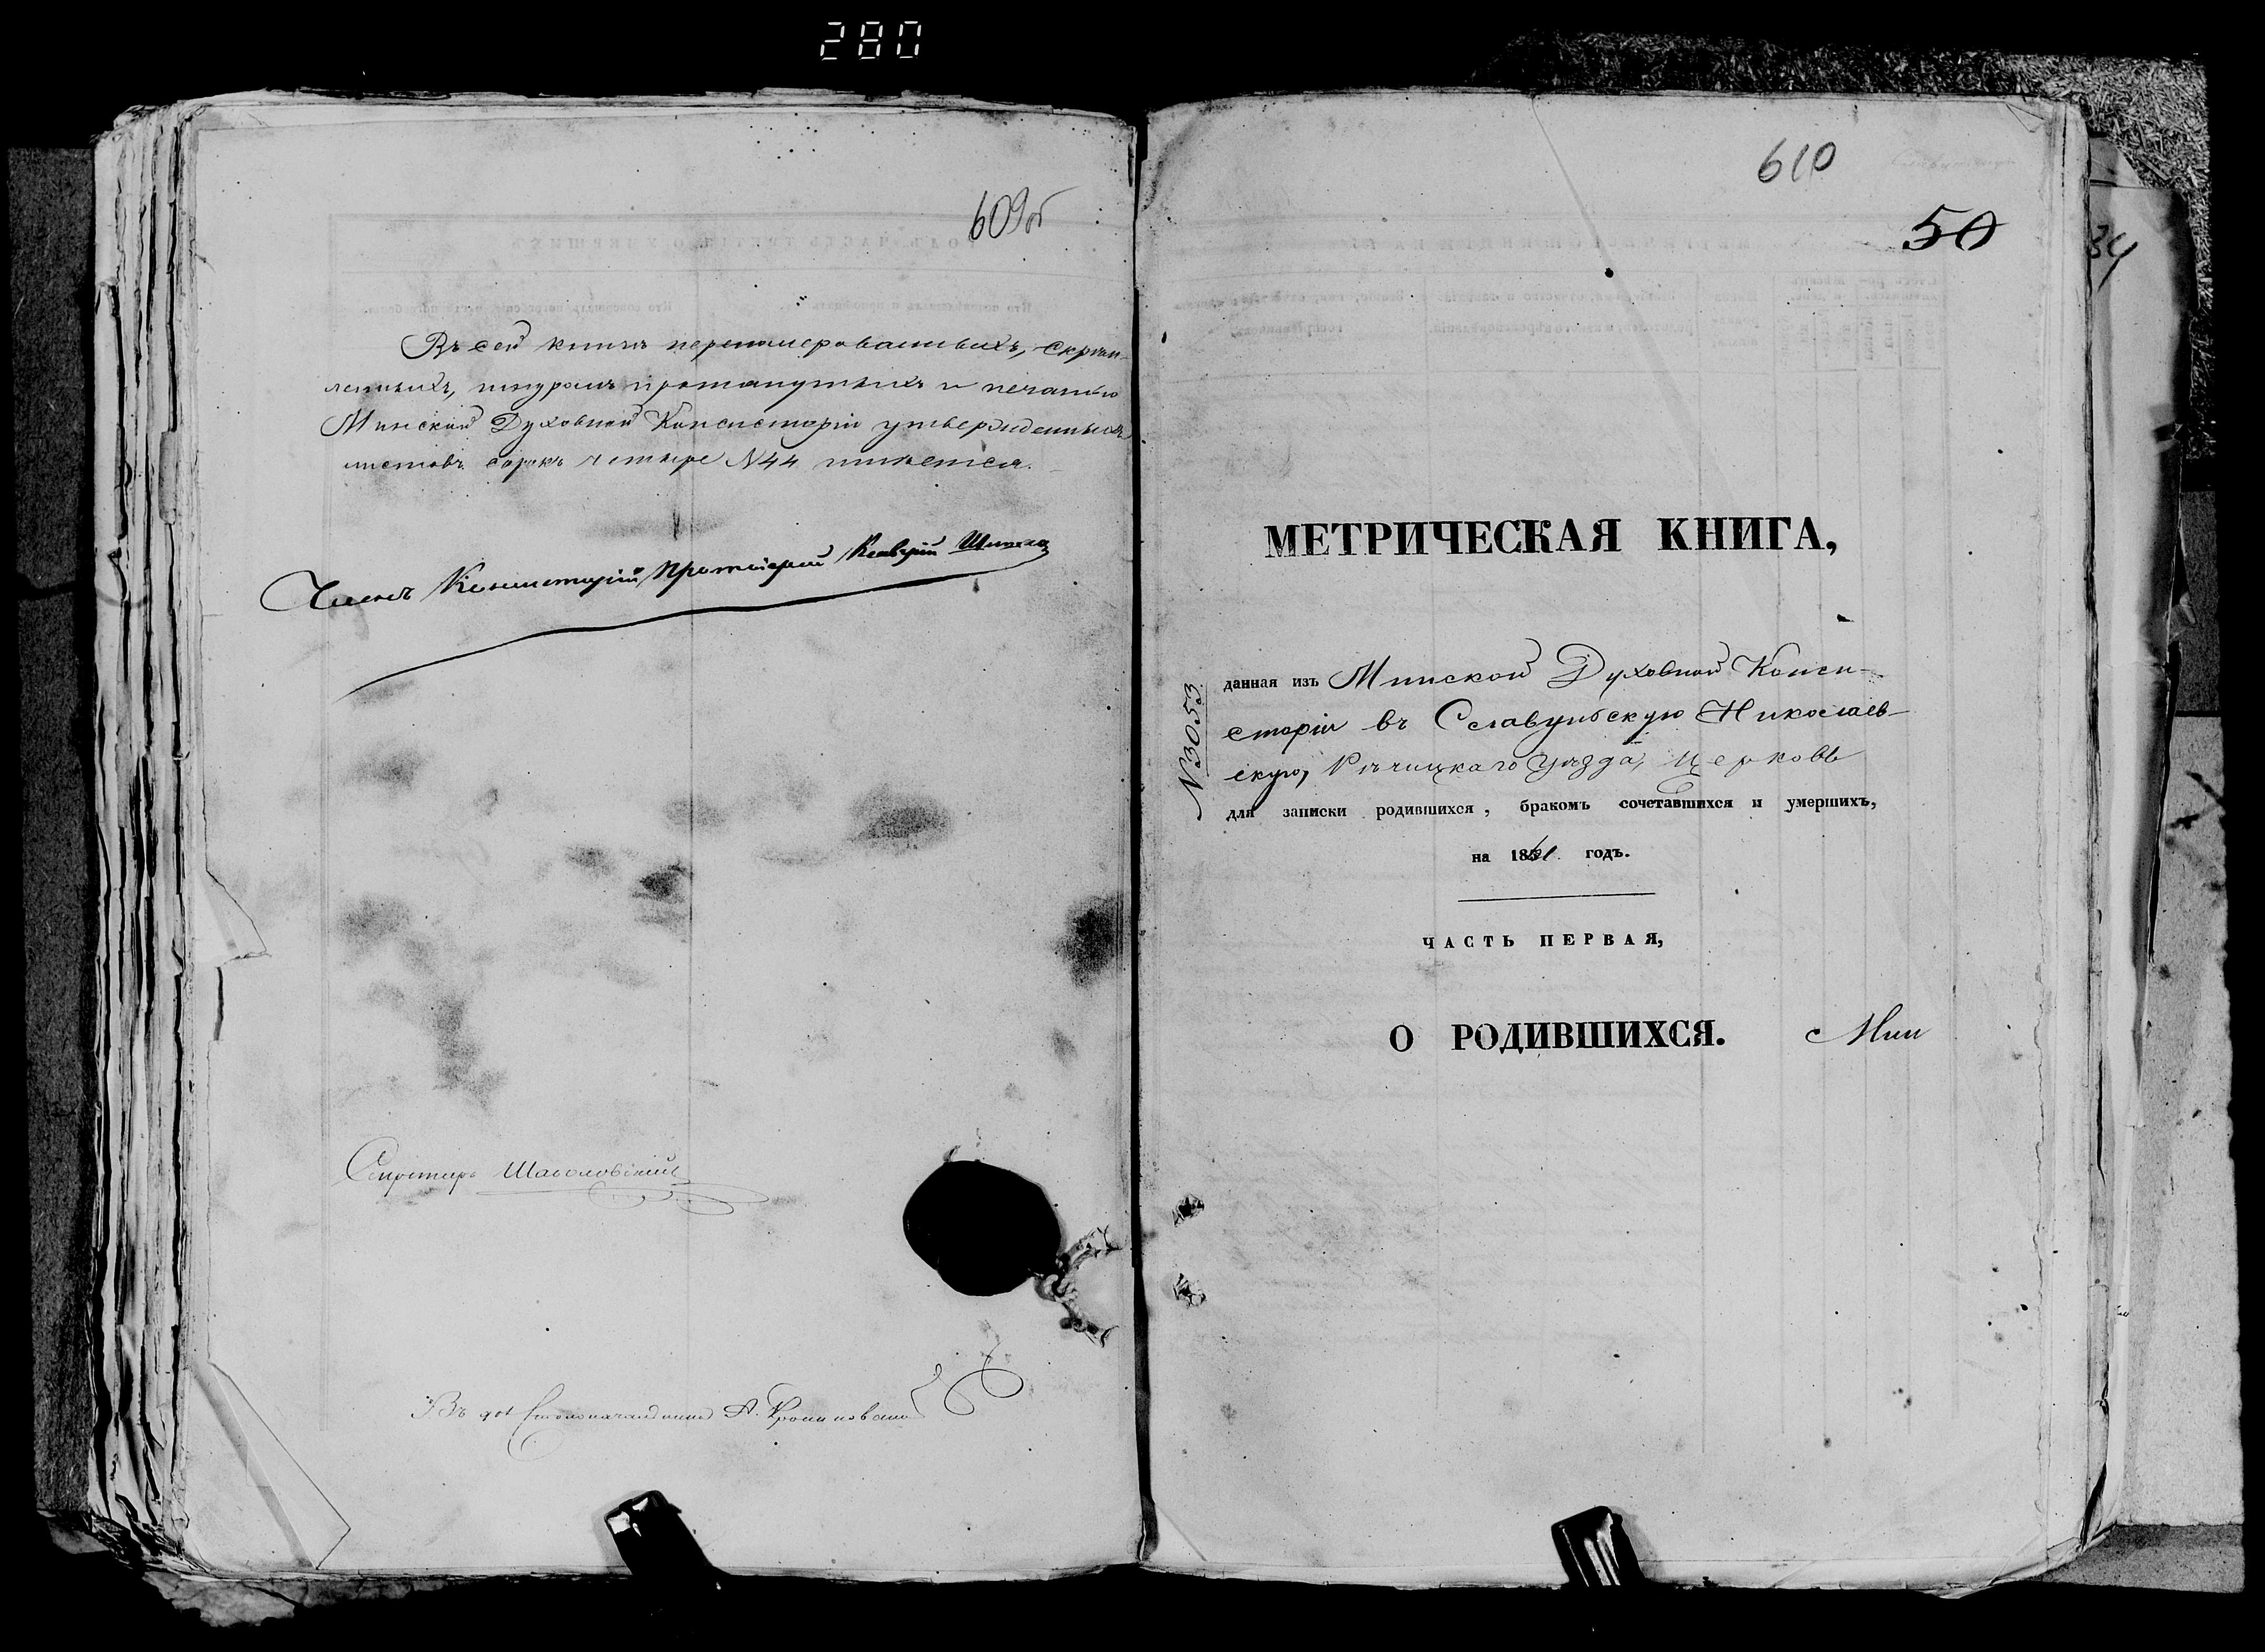 280
609об
Въ сей книгѣ перенумерованныхъ, скрѣп-
ленныхъ, шнуромъ протянутыхъ и печатью
Минской Духовной Консисторіи утвержденныхъ
листовъ сорокъ четыре N44 имѣется.
Членъ Консисторіи Протоіерей
Секретарь
Въ дол. Столоначальника А.
610
50
34
МЕТРИЧЕСКАЯ КНИГА,
N3053
данная изъ Минской Духовной Конси-
сторіи въ Славунскую Николаев-
скую, Рѣчицкаго уѣзда, церковь
для записки родившихся, бракомъ сочетавшихся и умершихъ,
на 1861 годъ.
ЧАСТЬ ПЕРВАЯ,
О РОДИВШИХСЯ.
Мин